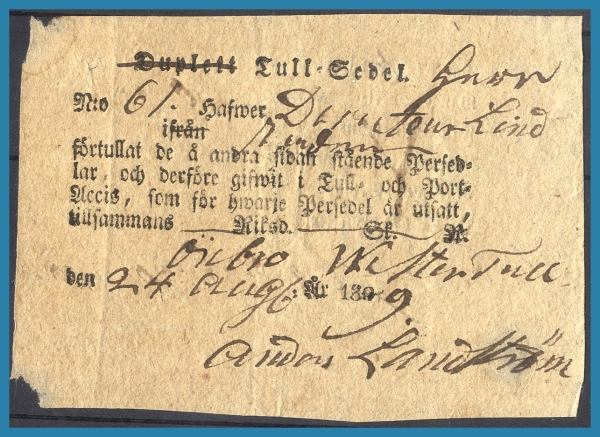 Duplett Tull-Sedel. Herr
N:o 61. Hafwer Directeur Lind
ifrån
förtullat de å andra sidan stående Persed-
lar, och derföre gifwit i Tull- och Port-
Accis, som för hwarje Persedel är utsatt,
tillsammans Riksd. Sk. R.
Örebro Wester Tull
den 24 Aug. År 1809.
Anders Landström